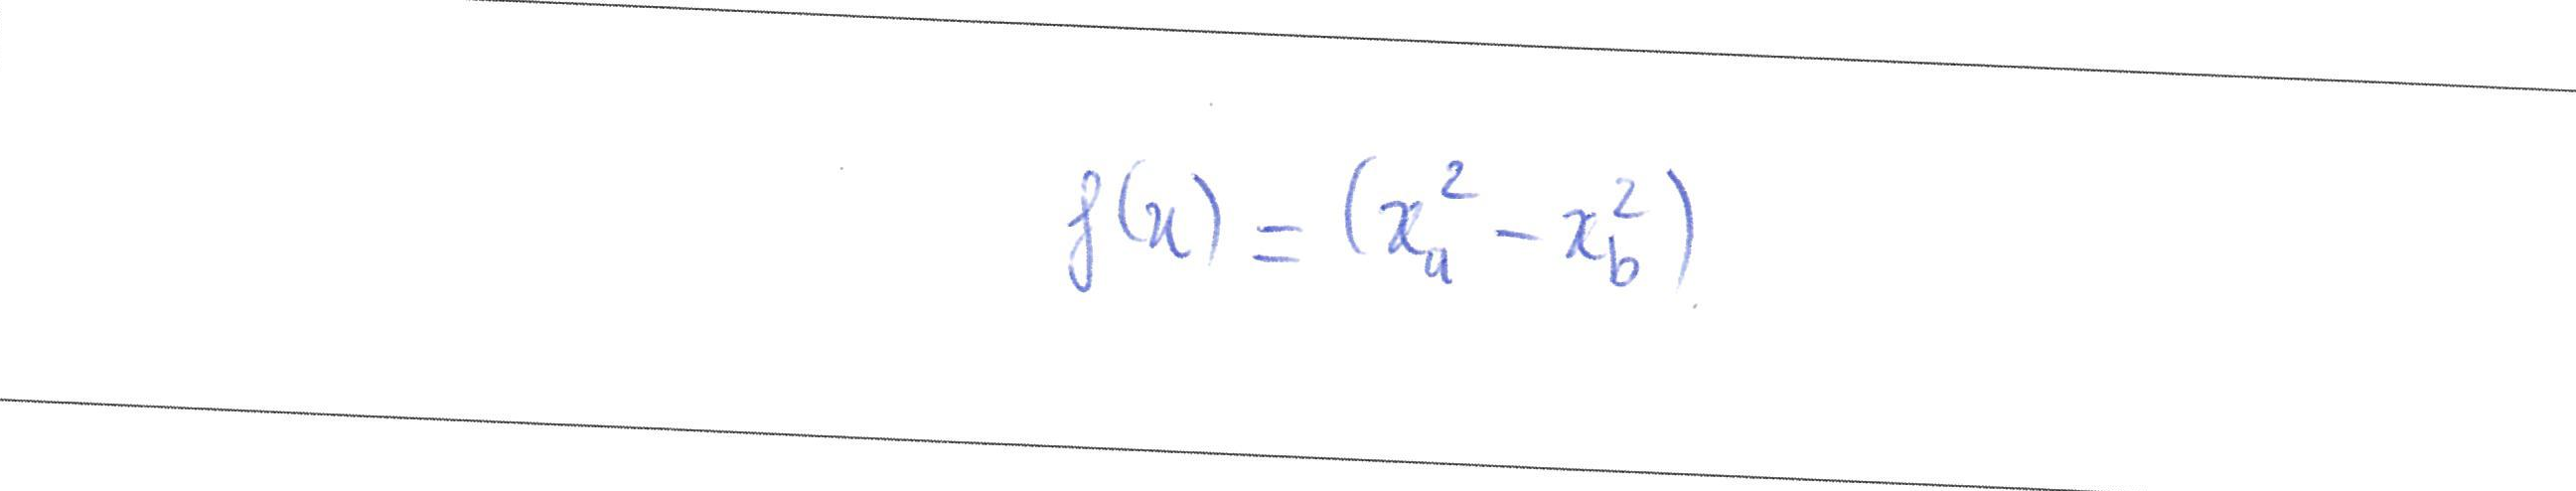 f(x) = (x_a^2 - x_b^2)